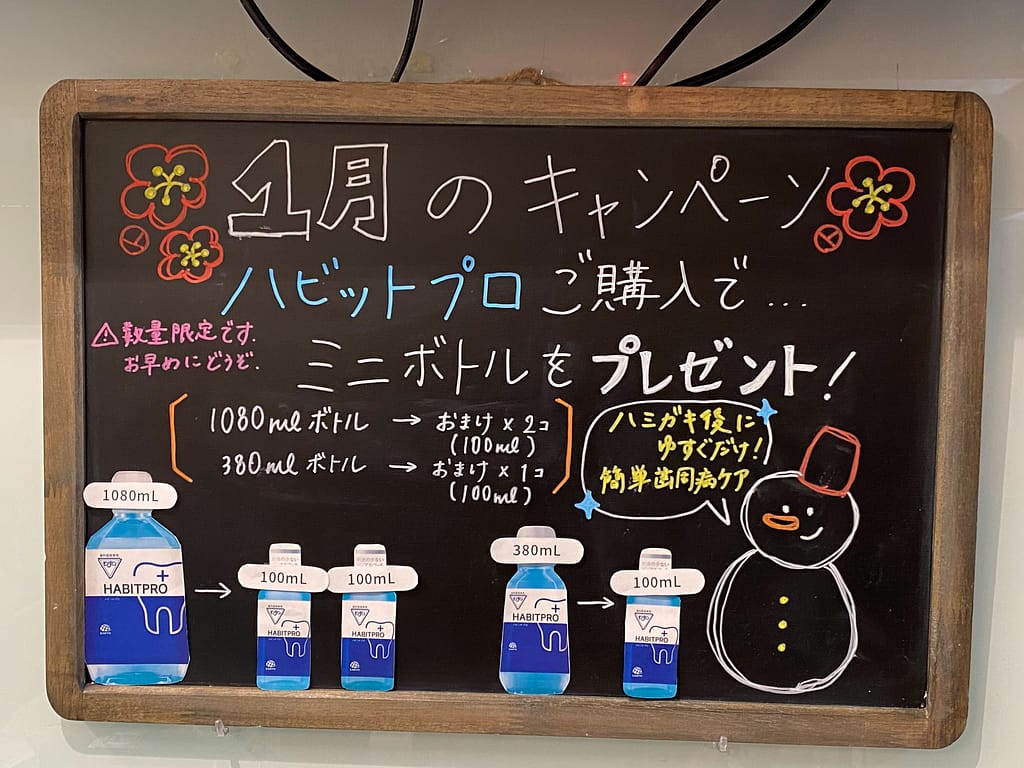 1月のキャンペーン
ハビットプロ ご購入で...
⚠数量限定です.
お早めにどうぞ.
ミニボトルを プレゼント!
1080mlボトル → おまけ×2コ
(100ml)
380mlボトル → おまけ×1コ
(100ml)
ハミガキ後に
ゆすぐだけ!
簡単歯周病ケア
1080mL
HABITPRO
→
100mL
HABITPRO
100mL
HABITPRO
380mL
HABITPRO
→
100mL
HABITPRO